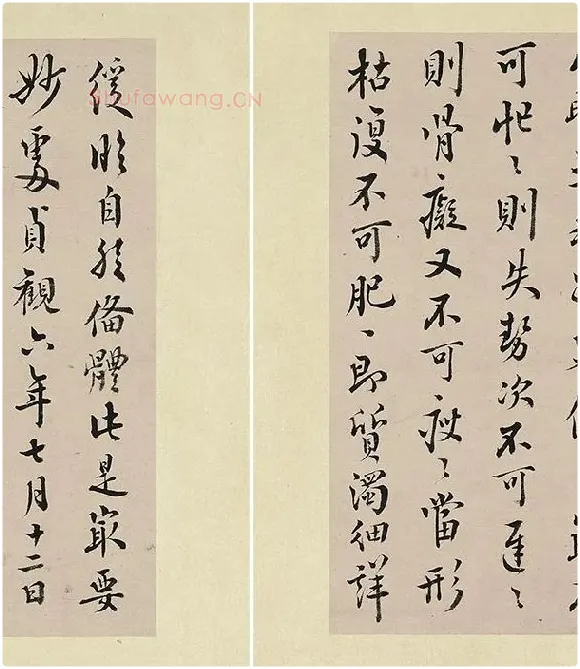 可忙〻則失勢次不可遲〻
則骨癡又不可瘦〻當形
枯復不可肥〻即質濁細詳
緩臨自然備體此是最要
妙處貞觀六年七月十二日
Shufawang.CN